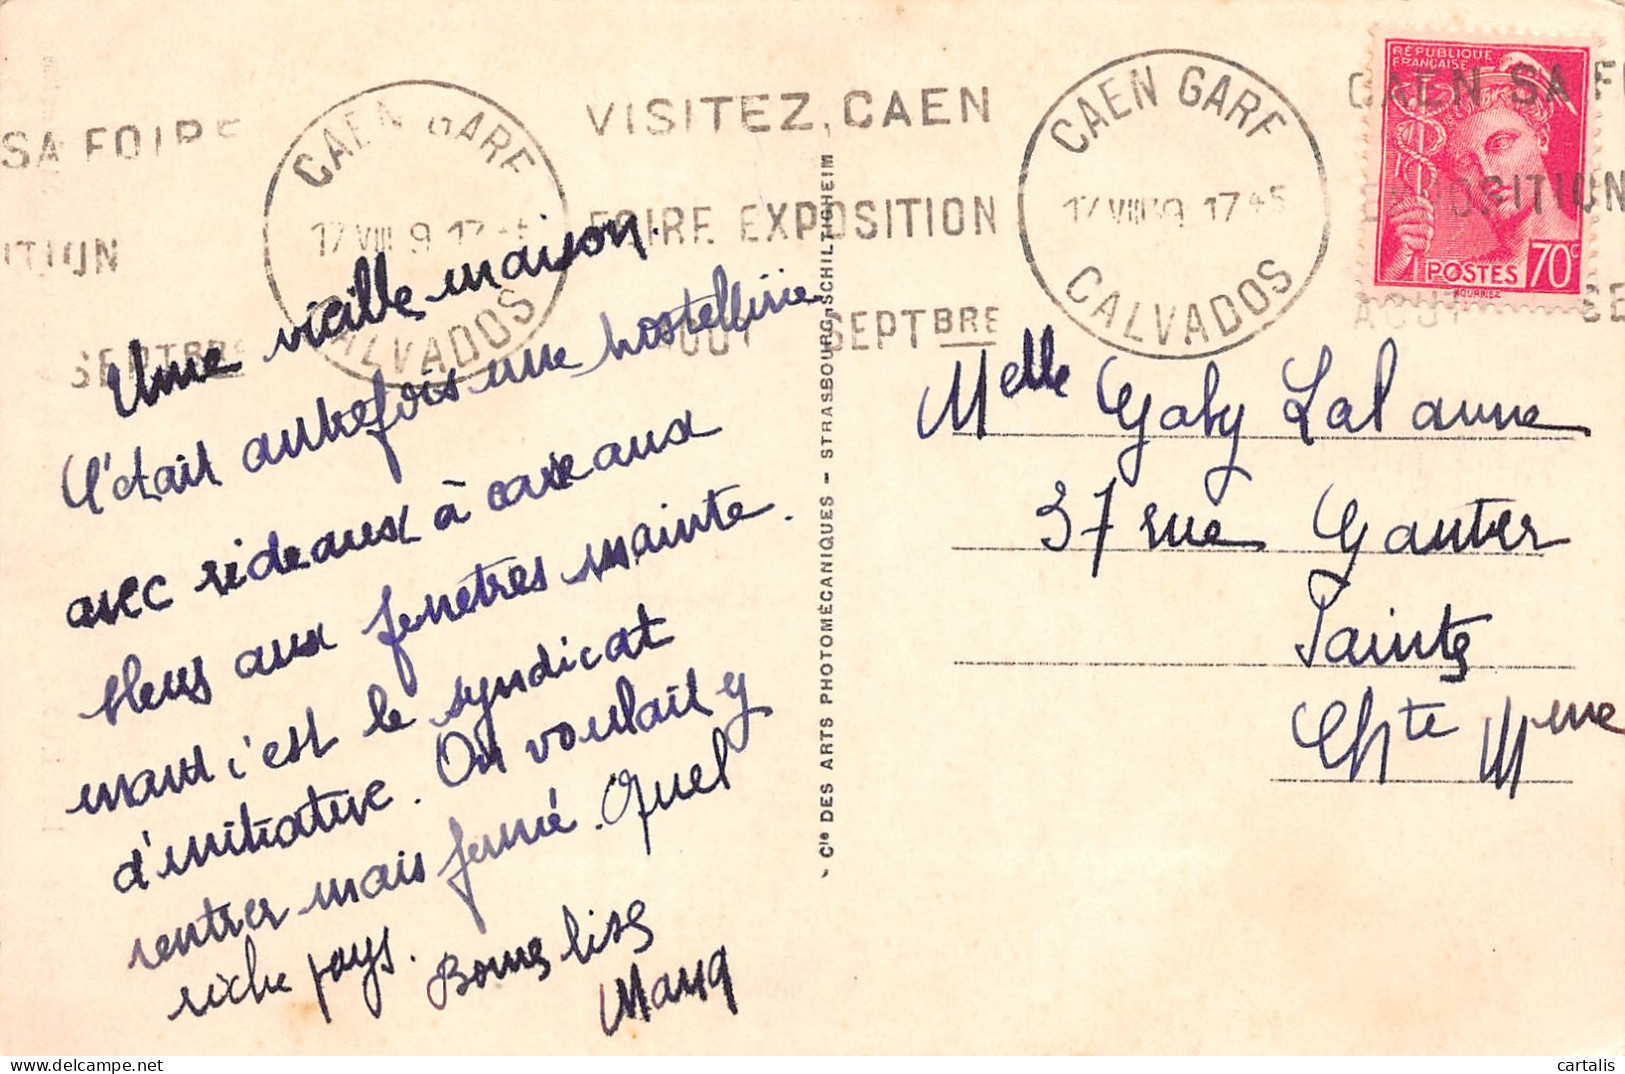 SA FOIRE
ITION
SEPTBRE
CAEN GARE
17 VIII 9 17
CALVADOS
VISITEZ, CAEN
FOIRE EXPOSITION
AOUT SEPTBRE
CAEN GARE
17 VIII 39 17 45
CALVADOS
CAEN SA F
EXPOSITION
AOUT SE
RÉPUBLIQUE
FRANÇAISE
POSTES 70c
HOURRIEZ
Une vieille maison.
C'était autrefois une hostellerie
avec rideaux à carreaux
bleus aux fenêtres mainte.
nant c'est le syndicat
d'initiative. On voulait y
rentrer mais fermé. Quel
riche pays. Bonnes bises
Cie DES ARTS PHOTOMÉCANIQUES - STRASBOURG-SCHILTIGHEIM
Melle Gaby Lalanne
37 rue Gautier
Saintes
Chte Mme
cartalis